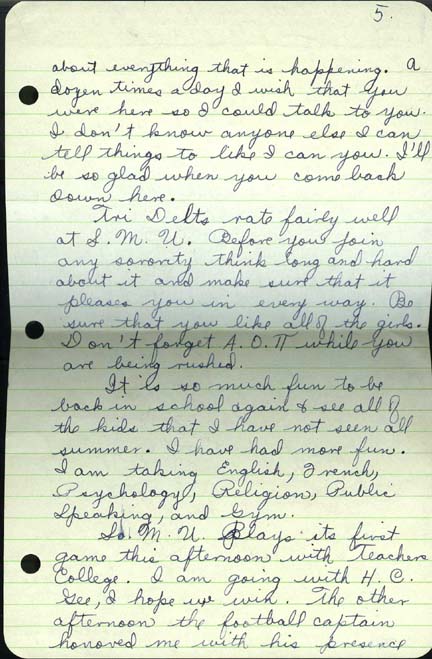 5.
about everything that is happening. A
dozen times a day I wish that you
were here so I could talk to you.
I don't know anyone else I can
tell things to like I can you. I'll
be so glad when you come back
down here.
Tri Delts rate fairly well
at S. M. U. Before you join
any sorority think long and hard
about it and make sure that it
pleases you in every way. Be
sure that you like all of the girls.
Don't forget A. O. Π while you
are being rushed.
It is so much fun to be
back in school again & see all of
the kids that I have not seen all
summer. I have had more fun.
I am taking English, French,
Psychology, Religion, Public
Speaking, and Gym.
S. M. U. plays its first
game this afternoon with Teachers
College. I am going with H. C.
Gee, I hope we win. The other
afternoon the football captain
honored me with his presence